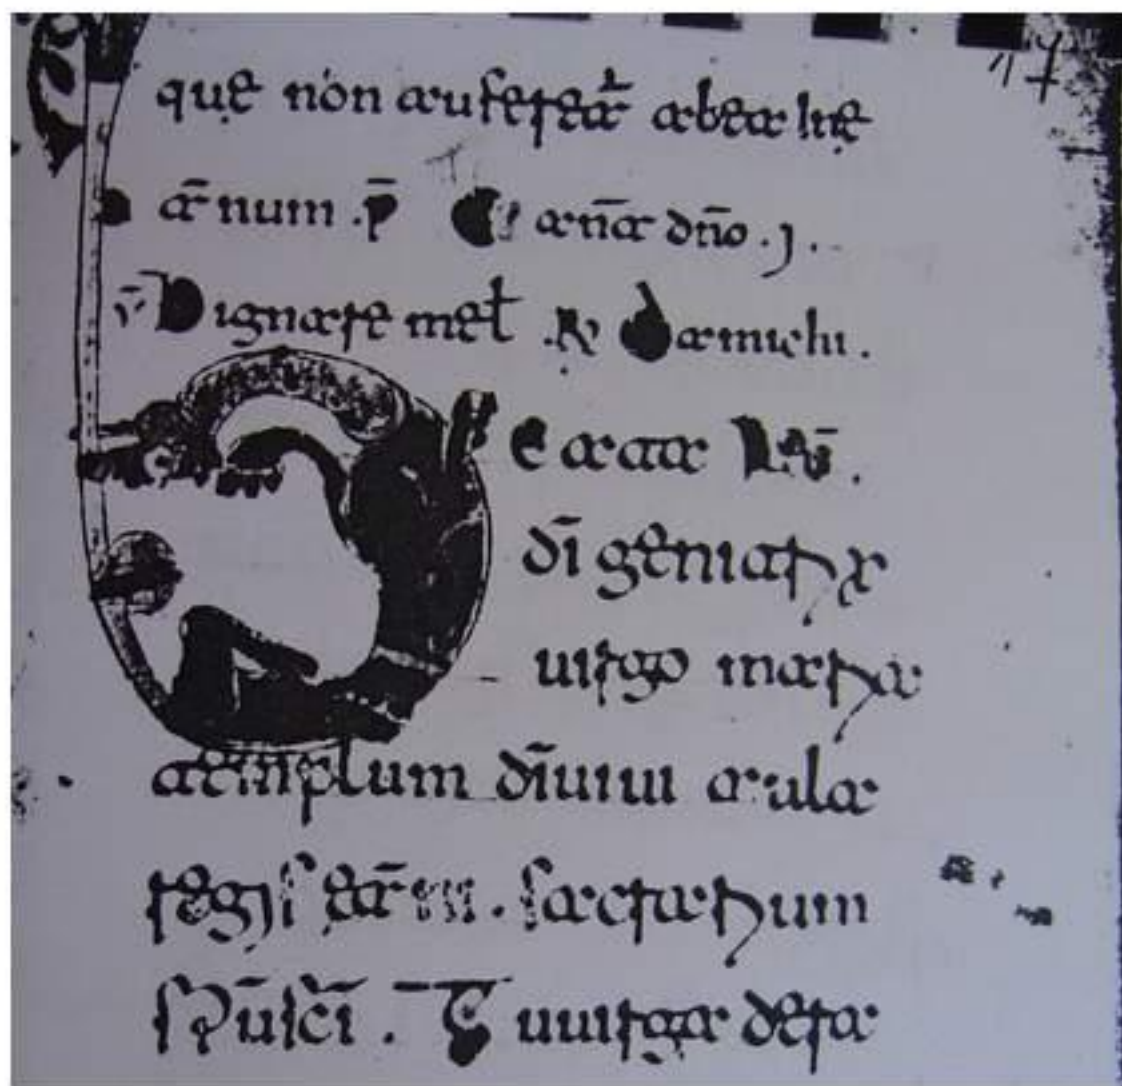 quę non auferet̄ abea ine
t̄num . p̄ Cant̄a dño .j.
v̄ Dignare me ł . R Da michi .
Beata
dī genitrix
uirgo maria
templum dī uiui aula
regis et̄ni . sacrarium
sp̄ū sc̄ī . Tu uirga de ra